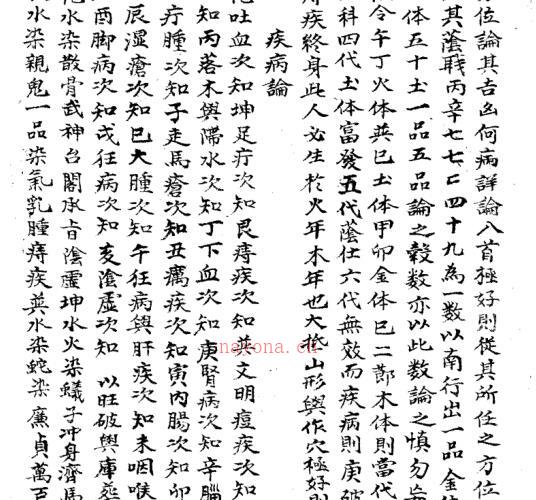 位論其吉凶何病詳論八首極好則從其所任之方位
其蔭戰丙辛七七二四十九為一數以南行出一品金
体五十土一品五品論之穀数亦以此数論之慎勿
令午丁火体巽巳土体甲卯金体巳二節木体則當代
科四代土体富發五代蔭仕六代無效而疾病則庚破
疾終身此人必生於火年木年也大抵山形與作穴極好
疾病論
吐血次知坤足疔次知艮痔疾次知巽文明痘疾次知
次知丙落木與滯水次知丁下血次知庚腎病次知辛腦
疔腫次知子走馬瘡次知丑癘疾次知寅内腸次知卯
辰濕瘡次知巳大腫次知午狂病與肝疾次知未咽喉
酉脚病次知戌狂病次知亥陰虛次知 以旺破與庫
水染散骨武神台閣承旨陰虛坤水火染蟻子冲身濟馬
水染親鬼一品染氣乳腫痔疾巽水染蛇染廉貞萬百
nayona.cn